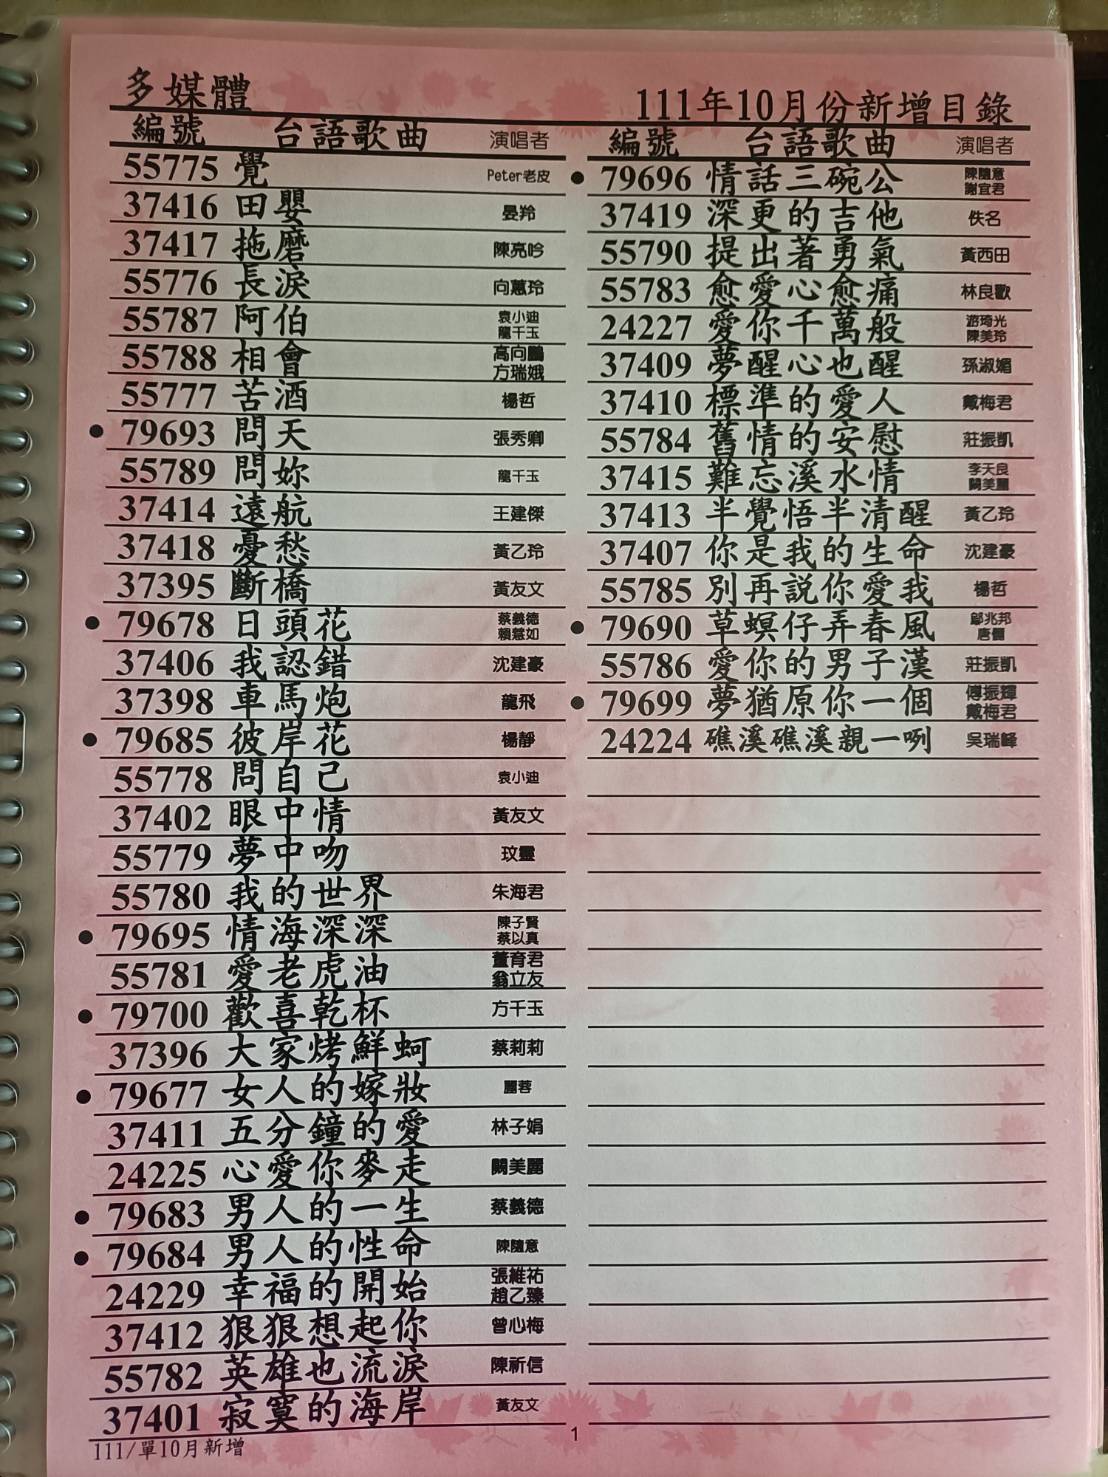 多媒體
111年10月份新增目錄
編號 台語歌曲 演唱者
55775 覺 Peter老皮
37416 田嬰 晏羚
37417 拖磨 陳亮吟
55776 長淚 向蕙玲
55787 阿伯 袁小迪 龍千玉
55788 相會 高向鵬 方瑞娥
55777 苦酒 楊哲
● 79693 問天 張秀卿
55789 問妳 龍千玉
37414 遠航 王建傑
37418 憂愁 黃乙玲
37395 斷橋 黃友文
● 79678 日頭花 蔡義德 賴慧如
37406 我認錯 沈建豪
37398 車馬炮 龍飛
● 79685 彼岸花 楊靜
55778 問自己 袁小迪
37402 眼中情 黃友文
55779 夢中吻 玟靈
55780 我的世界 朱海君
● 79695 情海深深 陳子賢 蔡以真
55781 愛老虎油 董育君 翁立友
● 79700 歡喜乾杯 方千玉
37396 大家烤鮮蚵 蔡莉莉
● 79677 女人的嫁妝 麗蓉
37411 五分鐘的愛 林子娟
24225 心愛你麥走 關美麗
● 79683 男人的一生 蔡義德
● 79684 男人的性命 陳隨意
24229 幸福的開始 張維祐 趙乙臻
37412 狠狠想起你 曾心梅
55782 英雄也流淚 陳祈信
37401 寂寞的海岸 黃友文
編號 台語歌曲 演唱者
● 79696 情話三碗公 陳隨意 謝宜君
37419 深更的吉他 佚名
55790 提出著勇氣 黃西田
55783 愈愛心愈痛 林良歡
24227 愛你千萬般 游琦光 陳美玲
37409 夢醒心也醒 孫淑媚
37410 標準的愛人 戴梅君
55784 舊情的安慰 莊振凱
37415 難忘溪水情 李天良 關美麗
37413 半覺悟半清醒 黃乙玲
37407 你是我的生命 沈建豪
55785 別再說你愛我 楊哲
● 79690 草螟仔弄春風 邰兆邦 唐儷
55786 愛你的男子漢 莊振凱
● 79699 夢猶原你一個 傅振輝 戴梅君
24224 礁溪礁溪親一咧 吳瑞峰
111/單10月新增
1